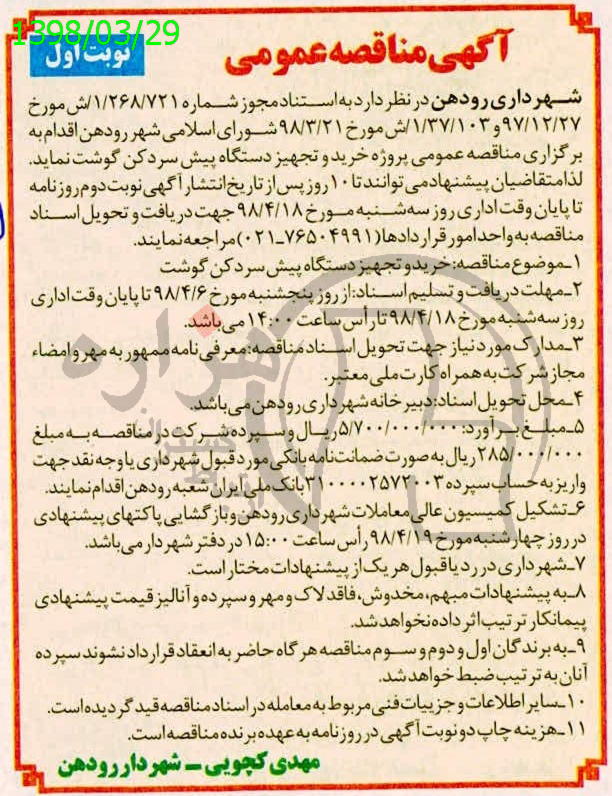 1398/03/29
آگهی مناقصه عمومی
نوبت اول
شهرداری رودهن در نظر دارد به استناد مجوز شماره ۱/۲۶۸/۷۲۱/ش مورخ
۹۷/۱۲/۲۷ و ۱/۳۷/۱۰۳/ش مورخ ۹۸/۳/۲۱ شورای اسلامی شهر رودهن اقدام به
برگزاری مناقصه عمومی پروژه خرید و تجهیز دستگاه پیش سردکن گوشت نماید.
لذا متقاضیان پیشنهاد می توانند تا ۱۰ روز پس از تاریخ انتشار آگهی نوبت دوم روزنامه
تا پایان وقت اداری روز سه شنبه مورخ ۹۸/۴/۱۸ جهت دریافت و تحویل اسناد
مناقصه به واحد امور قراردادها (۷۶۵۰۴۹۹۱-۰۲۱) مراجعه نمایند.
۱ـ موضوع مناقصه: خرید و تجهیز دستگاه پیش سردکن گوشت
۲ـ مهلت دریافت و تسلیم اسناد: از روز پنجشنبه مورخ ۹۸/۴/۶ تا پایان وقت اداری
روز سه شنبه مورخ ۹۸/۴/۱۸ تا رأس ساعت ۱۴:۰۰ می باشد.
۳ـ مدارک مورد نیاز جهت تحویل اسناد مناقصه: معرفی نامه ممهور به مهر و امضاء
مجاز شرکت به همراه کارت ملی معتبر.
۴ـ محل تحویل اسناد: دبیرخانه شهرداری رودهن می باشد.
۵ـ مبلغ برآورد: ۵/۷۰۰/۰۰۰/۰۰۰ ریال و سپرده شرکت در مناقصه به مبلغ
۲۸۵/۰۰۰/۰۰۰ ریال به صورت ضمانت نامه بانکی مورد قبول شهرداری یا وجه نقد جهت
واریز به حساب سپرده ۳۱۰۰۰۰۲۵۷۲۰۰۳ بانک ملی ایران شعبه رودهن اقدام نمایند.
۶ـ تشکیل کمیسیون عالی معاملات شهرداری رودهن و بازگشایی پاکتهای پیشنهادی
در روز چهارشنبه مورخ ۹۸/۴/۱۹ رأس ساعت ۱۵:۰۰ در دفتر شهردار می باشد.
۷ـ شهرداری در رد یا قبول هر یک از پیشنهادات مختار است.
۸ـ به پیشنهادات مبهم، مخدوش، فاقد لاک و مهر و سپرده و آنالیز قیمت پیشنهادی
پیمانکار ترتیب اثر داده نخواهد شد.
۹ـ به برندگان اول و دوم و سوم مناقصه هرگاه حاضر به انعقاد قرارداد نشوند سپرده
آنان به ترتیب ضبط خواهد شد.
۱۰ـ سایر اطلاعات و جزییات فنی مربوط به معامله در اسناد مناقصه قید گردیده است.
۱۱ـ هزینه چاپ دو نوبت آگهی در روزنامه به عهده برنده مناقصه است.
مهدی کچویی ـ شهردار رودهن
هزاره